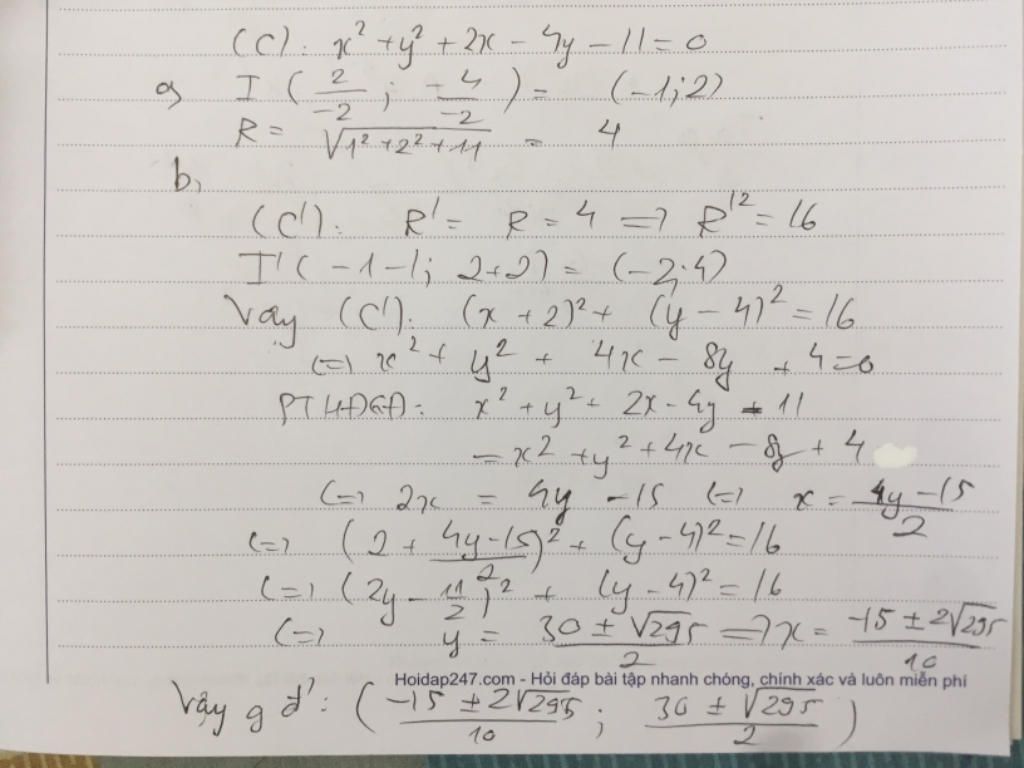 (C): x² + y² + 2x - 4y - 11 = 0
a, I ( 2/-2 ; -4/-2 ) = (-1; 2)
R = √(1² + 2² + 11) = 4
b,
(C'): R' = R = 4 => R'² = 16
I' (-1 - 1; 2 + 2) = (-2; 4)
Vậy (C'): (x + 2)² + (y - 4)² = 16
<=> x² + y² + 4x - 8y + 4 = 0
PTHĐGĐ: x² + y² + 2x - 4y - 11
= x² + y² + 4x - 8y + 4
<=> 2x = 4y - 15 <=> x = (4y - 15)/2
<=> (2 + (4y - 15)/2)² + (y - 4)² = 16
<=> (2y - 11/2)² + (y - 4)² = 16
<=> y = (30 ± √295)/2 => x = (-15 ± 2√295)/10
Hoidap247.com - Hỏi đáp bài tập nhanh chóng, chính xác và luôn miễn phí
Vậy gđ': ( (-15 ± 2√295)/10 ; (30 ± √295)/2 )